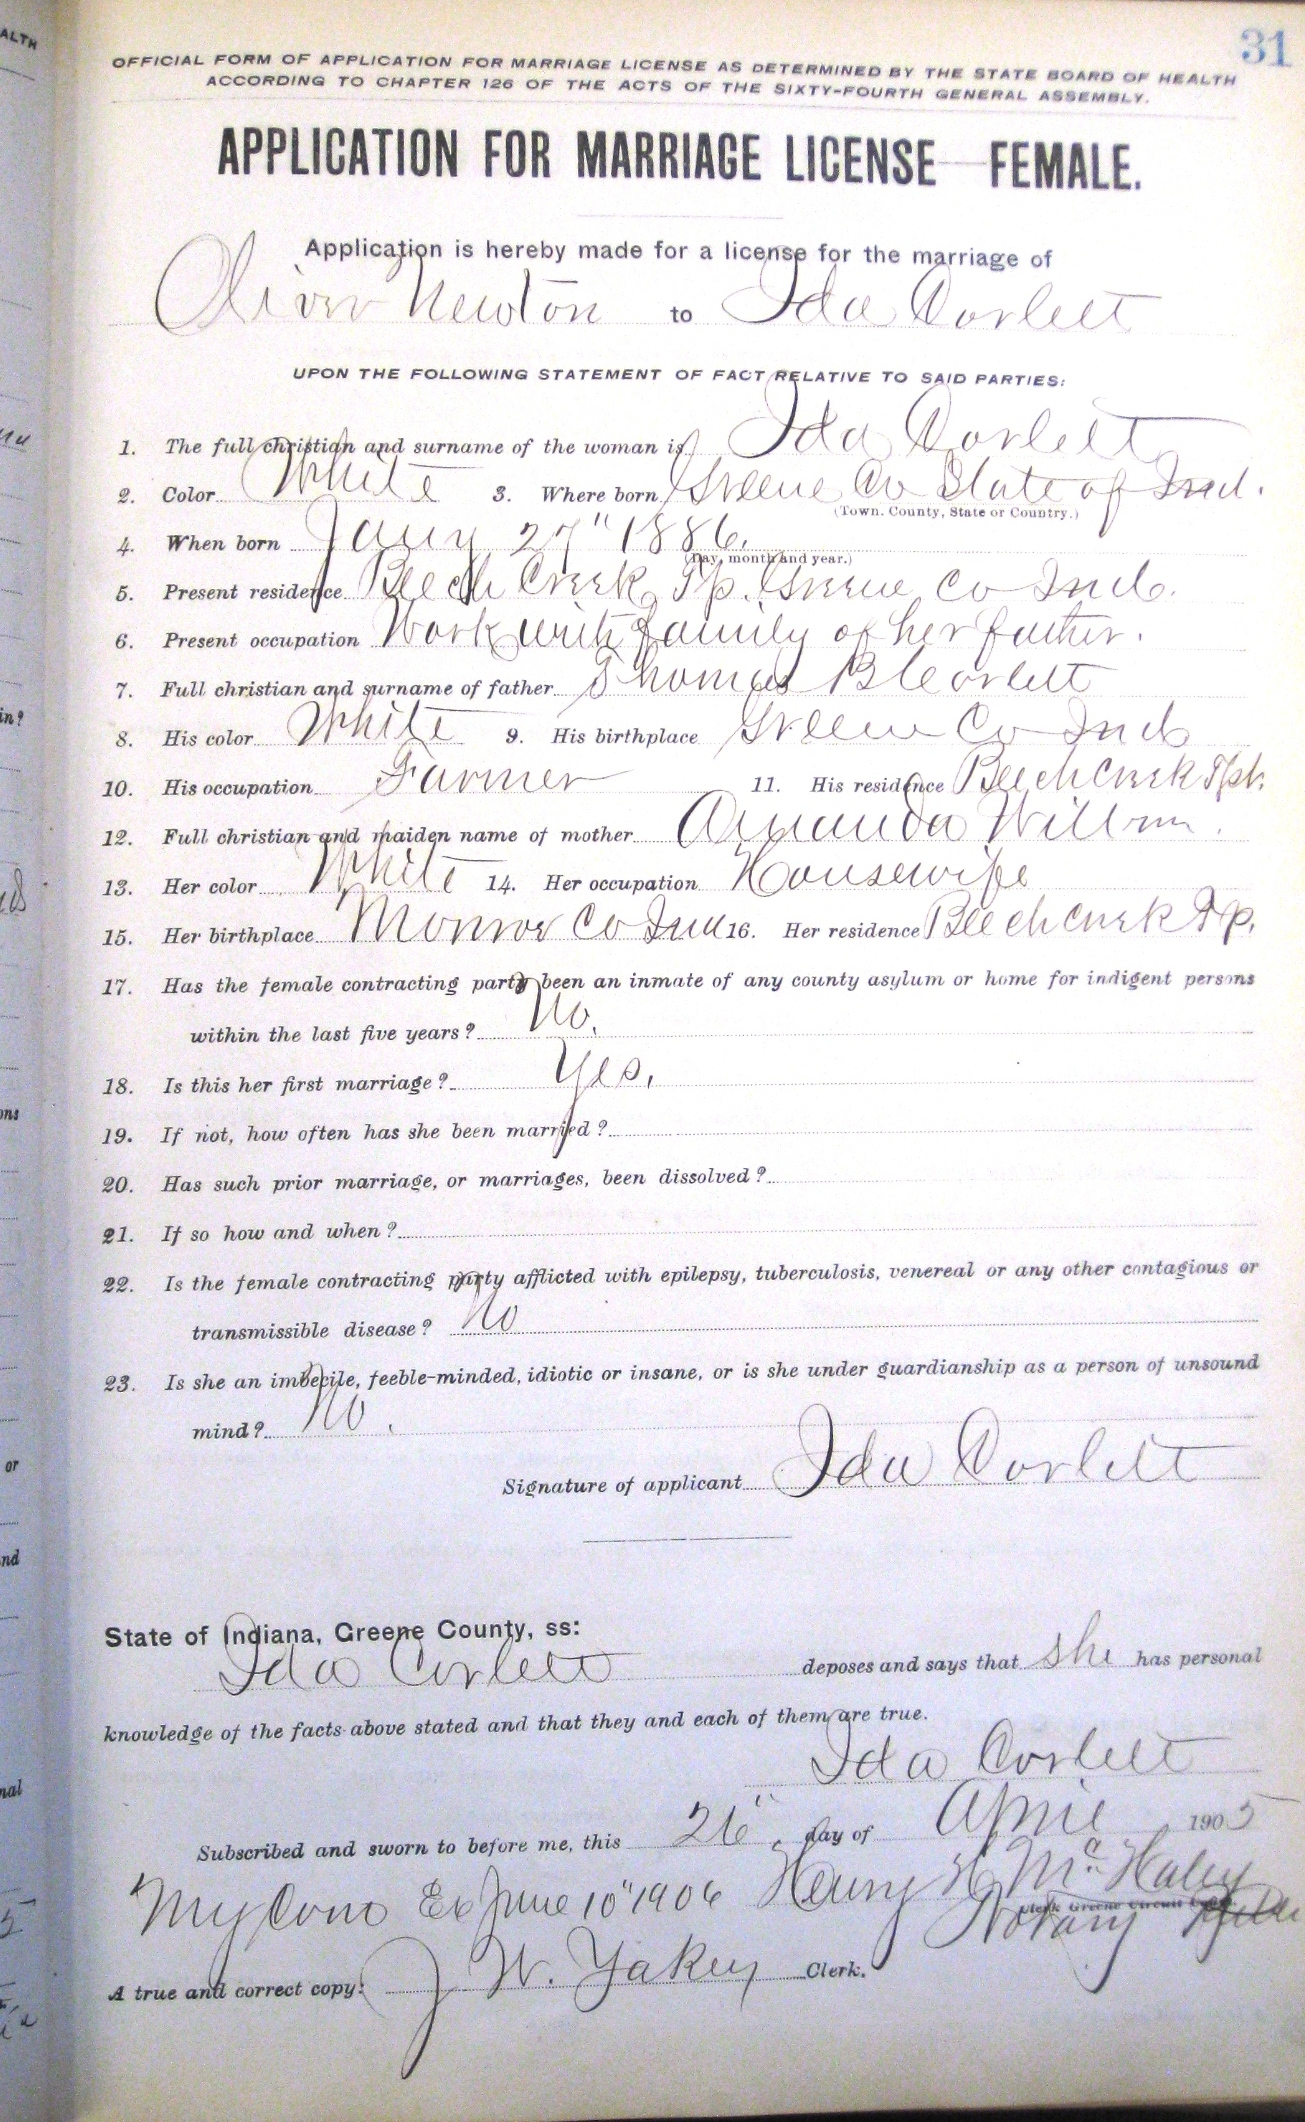 31
OFFICIAL FORM OF APPLICATION FOR MARRIAGE LICENSE AS DETERMINED BY THE STATE BOARD OF HEALTH
ACCORDING TO CHAPTER 126 OF THE ACTS OF THE SIXTY-FOURTH GENERAL ASSEMBLY.
APPLICATION FOR MARRIAGE LICENSE FEMALE.
Application is hereby made for a license for the marriage of
Oliver Newton to Ida Corlett
UPON THE FOLLOWING STATEMENT OF FACT RELATIVE TO SAID PARTIES:
1. The full christian and surname of the woman is Ida Corlett
2. Color White 3. Where born Greene Co State of Ind.
(Town. County, State or Country.)
4. When born Jany 27" 1886.
(Day, month and year.)
5. Present residence Beech Creek Tp. Greene Co Ind.
6. Present occupation Work with family of her father.
7. Full christian and surname of father Thomas B Corlett
8. His color White 9. His birthplace Greene Co Ind
10. His occupation Farmer 11. His residence Beech Creek
12. Full christian and maiden name of mother Amanda
13. Her color White 14. Her occupation Housewife
15. Her birthplace Monroe Co Ind 16. Her residence Beech Creek Tp.
17. Has the female contracting party been an inmate of any county asylum or home for indigent persons
within the last five years? No.
18. Is this her first marriage? Yes.
19. If not, how often has she been married?
20. Has such prior marriage, or marriages, been dissolved?
21. If so how and when?
22. Is the female contracting party afflicted with epilepsy, tuberculosis, venereal or any other contagious or
transmissible disease? No
23. Is she an imbecile, feeble-minded, idiotic or insane, or is she under guardianship as a person of unsound
mind? No.
Signature of applicant Ida Corlett
State of Indiana, Greene County, ss:
Ida Corlett deposes and says that she has personal
knowledge of the facts above stated and that they and each of them are true.
Ida Corlett
Subscribed and sworn to before me, this 26" day of April 1905
My Com Ex June 10" 1906 Henry H McHaley
Clerk Greene Circuit Court.
Notary
A true and correct copy: J W. Yakey Clerk.